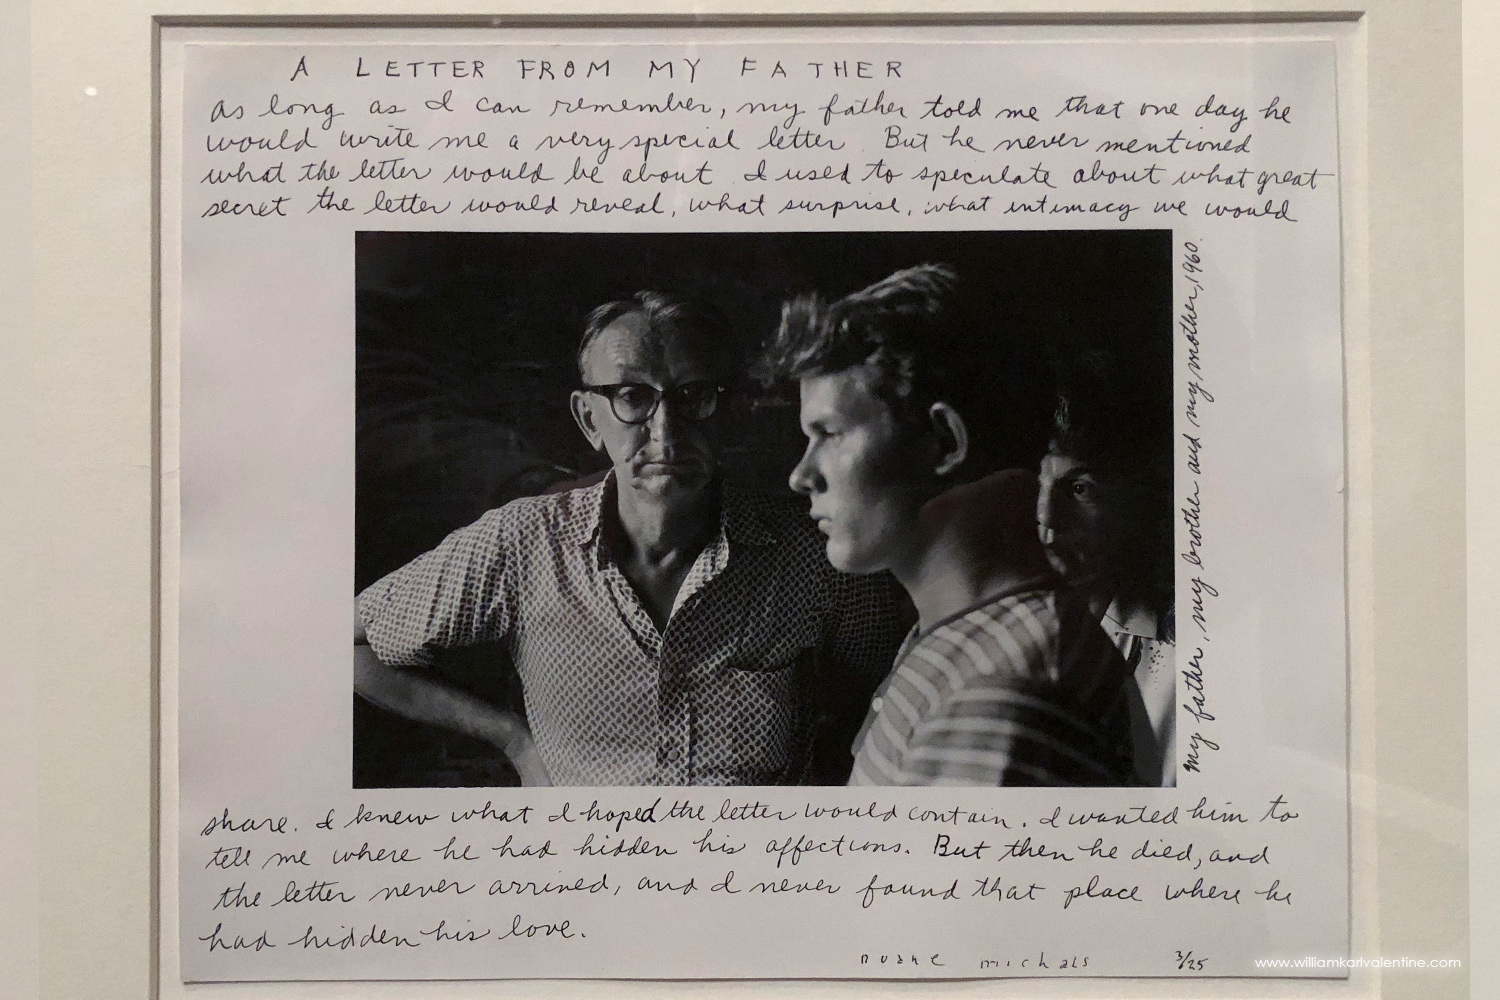 A LETTER FROM MY FATHER
As long as I can remember, my father told me that one day he
would write me a very special letter. But he never mentioned
what the letter would be about. I used to speculate about what great
secret the letter would reveal, what surprise, what intimacy we would
My father, my brother and my mother, 1960.
share. I knew what I hoped the letter would contain. I wanted him to
tell me where he had hidden his affections. But then he died, and
the letter never arrived, and I never found that place where he
had hidden his love.
Duane Michals 3/25
www.williamkarlvalentine.com